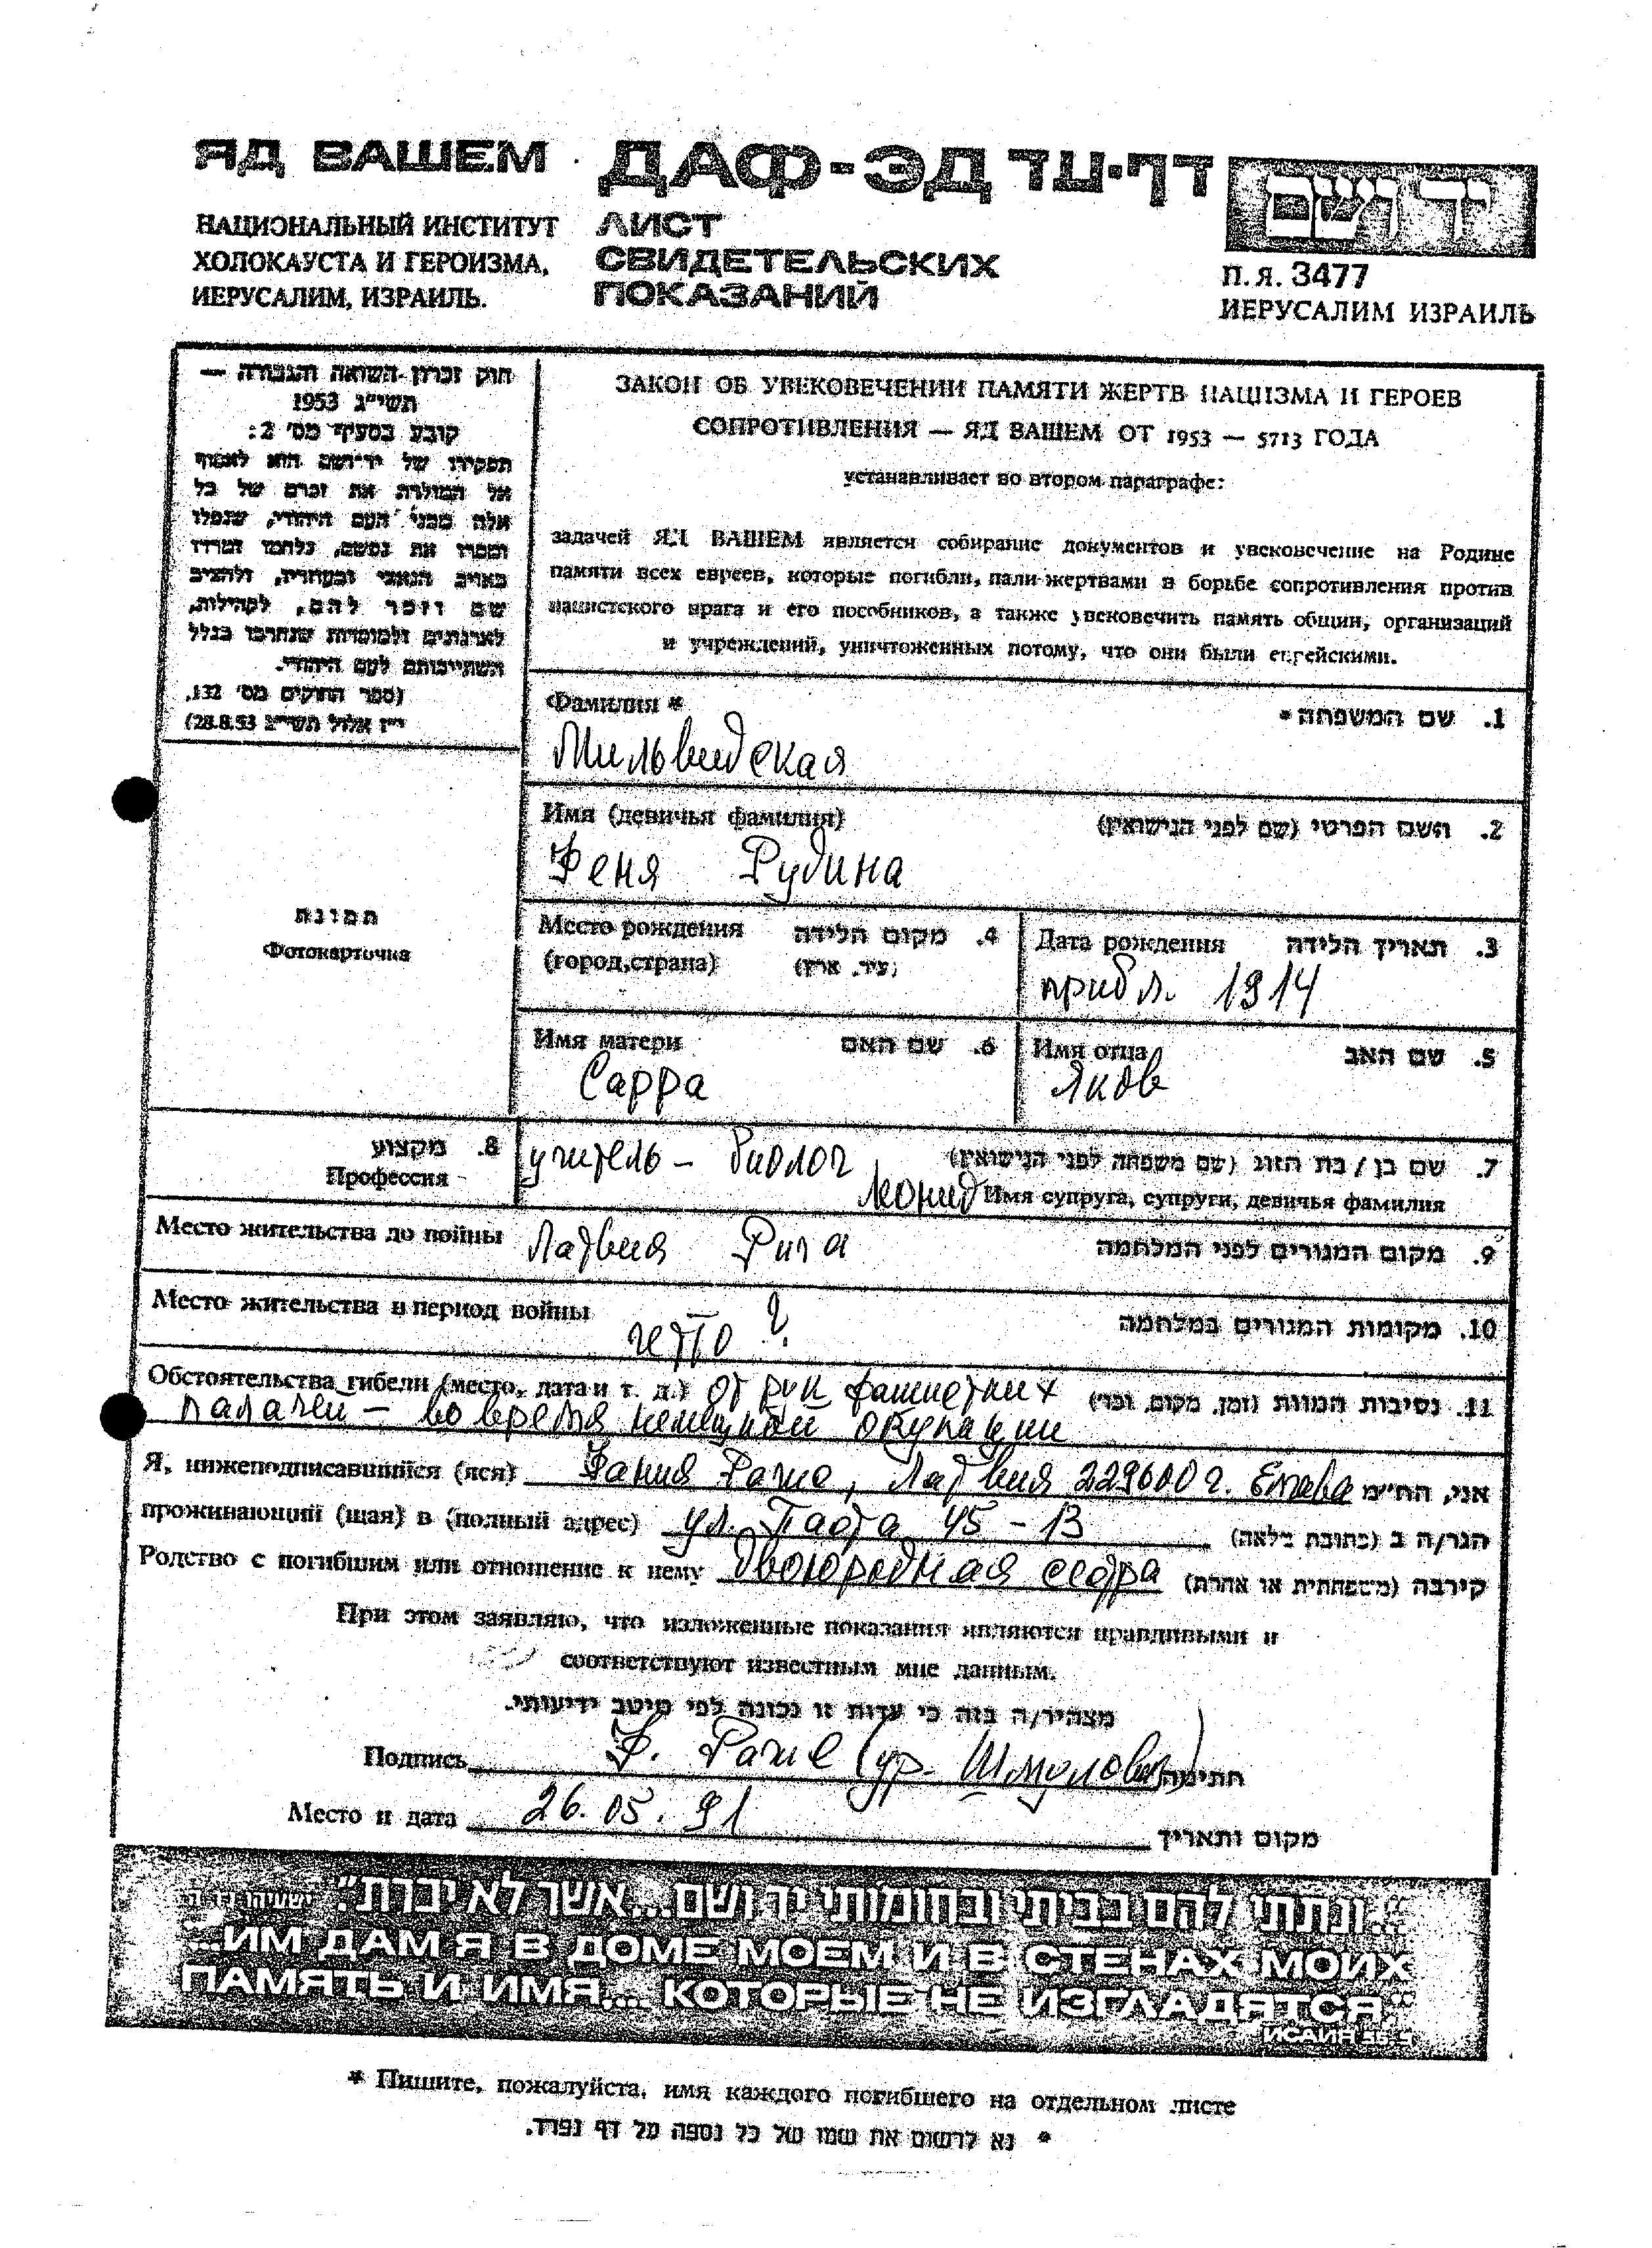 ЯД ВАШЕМ ДАФ-ЭД דף-עד יד ושם
НАЦИОНАЛЬНЫЙ ИНСТИТУТ
ХОЛОКАУСТА И ГЕРОИЗМА,
ИЕРУСАЛИМ, ИЗРАИЛЬ.
ЛИСТ
СВИДЕТЕЛЬСКИХ
ПОКАЗАНИЙ
П.Я. 3477
ИЕРУСАЛИМ ИЗРАИЛЬ
חוק זכרון השואה והגבורה —
תשי"ג 1953
קובע בסעיף מס' 2:
תפקידו של יד-ושם הוא לאסוף
אל המולדת את זכרם של כל
אלה מבני העם היהודי, שנפלו
ומסרו את נפשם, נלחמו ומרדו
באויב הנאצי ובעוזריו, ולהציב
שם וזכר להם, לקהילות,
לארגונים ולמוסדות שנחרבו בגלל
השתייכותם לעם היהודי.
(ספר החוקים מס' 132,
י"ז אלול תשי"ג 28.8.53)
ЗАКОН ОБ УВЕКОВЕЧЕНИИ ПАМЯТИ ЖЕРТВ НАЦИЗМА И ГЕРОЕВ
СОПРОТИВЛЕНИЯ — ЯД ВАШЕМ ОТ 1953 — 5713 ГОДА
устанавливает во втором параграфе:
задачей ЯД ВАШЕМ является собирание документов и увековечение на Родине
памяти всех евреев, которые погибли, пали жертвами в борьбе сопротивления против
нацистского врага и его пособников, а также увековечить память общин, организаций
и учреждений, уничтоженных потому, что они были еврейскими.
Фамилия * 1. שם המשפחה *
Мильвидская
Имя (девичья фамилия) 2. השם הפרטי (שם לפני הנישואין)
Феня Рудина
תמונת
Фотокарточка
Место рождения 4. מקום הלידה
(город,страна) (עיר, ארץ)
Дата рождения 3. תאריך הלידה
прибл. 1914
Имя матери 6. שם האם
Сарра
Имя отца 5. שם האב
Яков
8. מקצוע
Профессия
учитель - биолог
7. שם בן / בת הזוג (שם משפחה לפני הנישואין)
Леонид Имя супруга, супруги, девичья фамилия
Место жительства до войны Латвия Рига 9. מקום המגורים לפני המלחמה
Место жительства в период войны гетто ? 10. מקומות המגורים במלחמה
Обстоятельства гибели (место, дата и т. д.) от рук фашистких 11. נסיבות המוות (זמן, מקום, וכו')
палачей - во время немецкой окупации
Я, нижеподписавшийся (аяся) Фания Раше, Латвия 229600 г. Елгава אני, הח"מ
проживающий (щая) в (полный адрес) ул. Паста 45 - 13 הגר/ה ב (כתובת מלאה)
Родство с погибшим или отношение к нему двоюродная сестра קירבה (משפחתית או אחרת)
При этом заявляю, что изложенные показания являются правдивыми и
соответствуют известным мне данным.
מצהיר/ה בזה כי עדות זו נכונה לפי מיטב ידיעותי.
Подпись Ф. Раше (ур. Шмулович) חתימה
Место и дата 26.05.91 מקום ותאריך
"...ונתתי להם בביתי ובחומותי יד ושם...אשר לא יכרת."
"...ИМ ДАМ Я В ДОМЕ МОЕМ И В СТЕНАХ МОИХ
ПАМЯТЬ И ИМЯ.... КОТОРЫЕ НЕ ИЗГЛАДЯТСЯ."
* Пишите, пожалуйста, имя каждого погибшего на отдельном листе
* נא לרשום את שמו של כל נספה על דף נפרד.